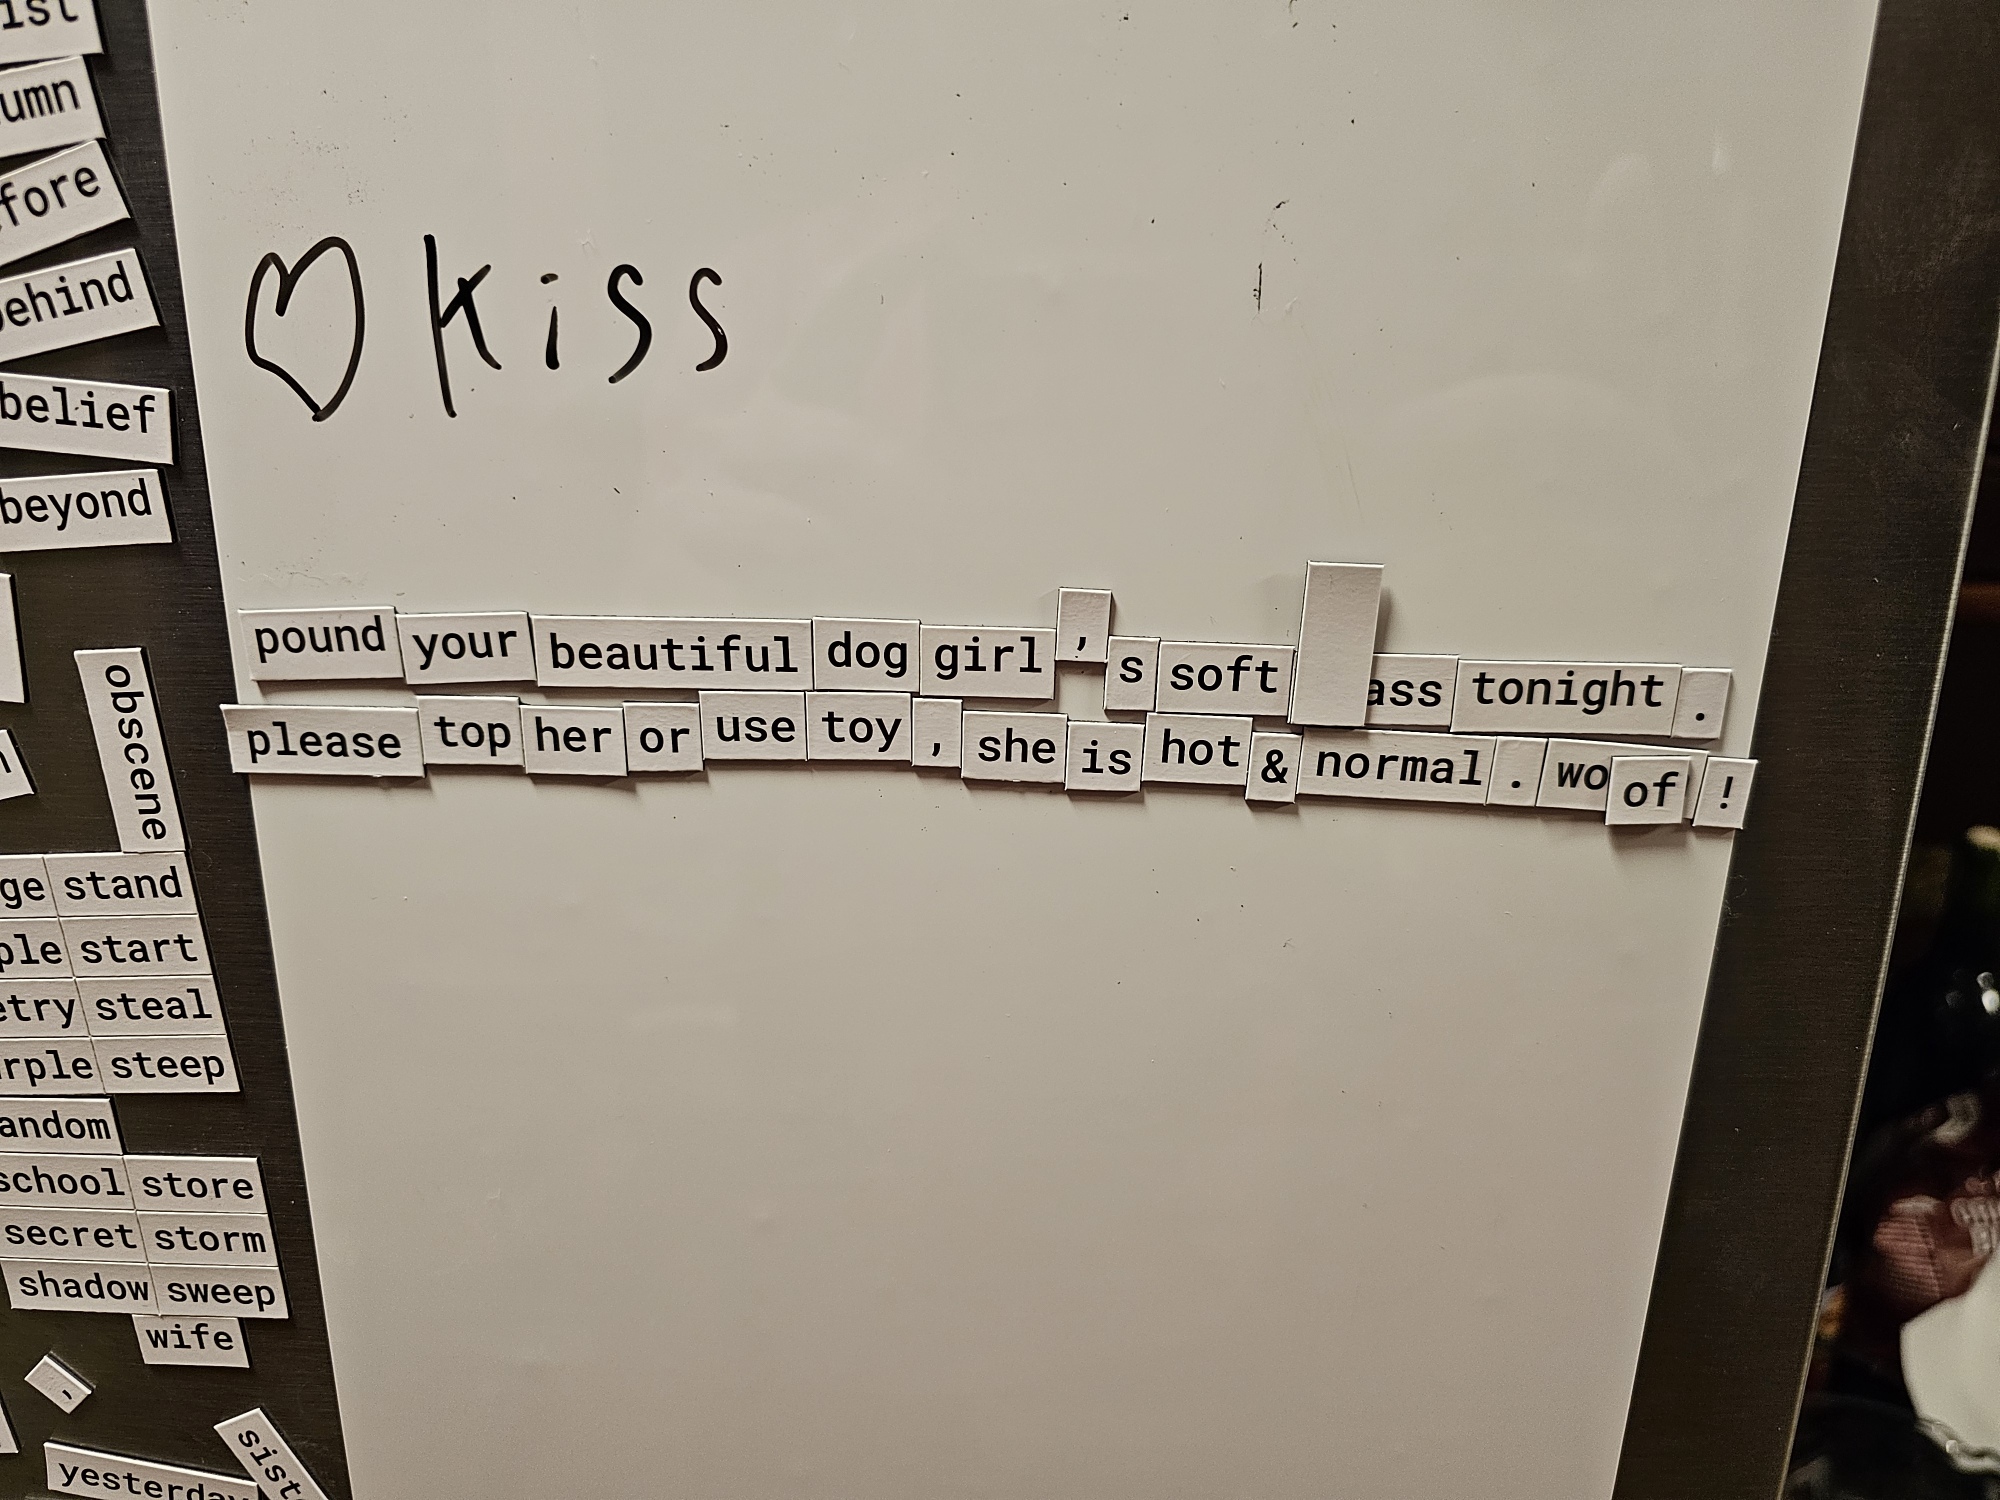 ♡ Kiss
pound your beautiful dog girl's soft ass tonight.
please top her or use toy, she is hot & normal. woof!
umn
fore
ehind
belief
beyond
obscene
ge stand
ple start
etry steal
rple steep
andom
school store
secret storm
shadow sweep
wife
,
yesterday
sist